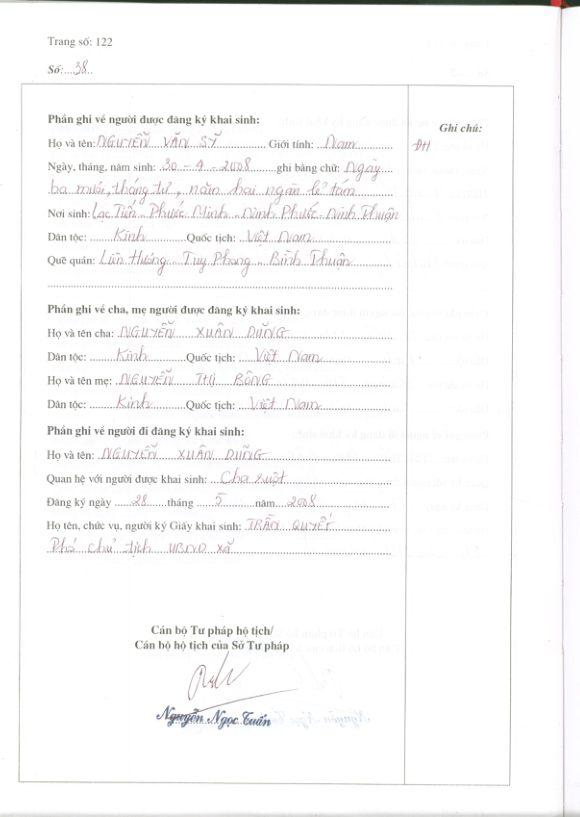 Trang số: 122
Số:...38..
Phần ghi về người được đăng ký khai sinh:
Ghi chú:
Họ và tên: NGUYỄN VĂN SỸ Giới tính: Nam
ĐH
Ngày, tháng, năm sinh: 30 - 4 - 2008 ghi bằng chữ: Ngày
ba mươi, tháng tư, năm hai ngàn lẻ tám
Nơi sinh: Lạc Tiến - Phước Minh - Ninh Phước - Ninh Thuận
Dân tộc: Kinh Quốc tịch: Việt Nam
Quê quán: Liên Hương - Tuy Phong - Bình Thuận
Phần ghi về cha, mẹ người được đăng ký khai sinh:
Họ và tên cha: NGUYỄN XUÂN DŨNG
Dân tộc: Kinh Quốc tịch: Việt Nam
Họ và tên mẹ: NGUYỄN THỊ BÔNG
Dân tộc: Kinh Quốc tịch: Việt Nam
Phần ghi về người đi đăng ký khai sinh:
Họ và tên: NGUYỄN XUÂN DŨNG
Quan hệ với người được khai sinh: Cha ruột
Đăng ký ngày 28 tháng 5 năm 2008
Họ tên, chức vụ, người ký Giấy khai sinh: TRẦN QUYẾT
Phó chủ tịch UBND xã
Cán bộ Tư pháp hộ tịch/
Cán bộ hộ tịch của Sở Tư pháp
Nguyễn Ngọc Tuấn